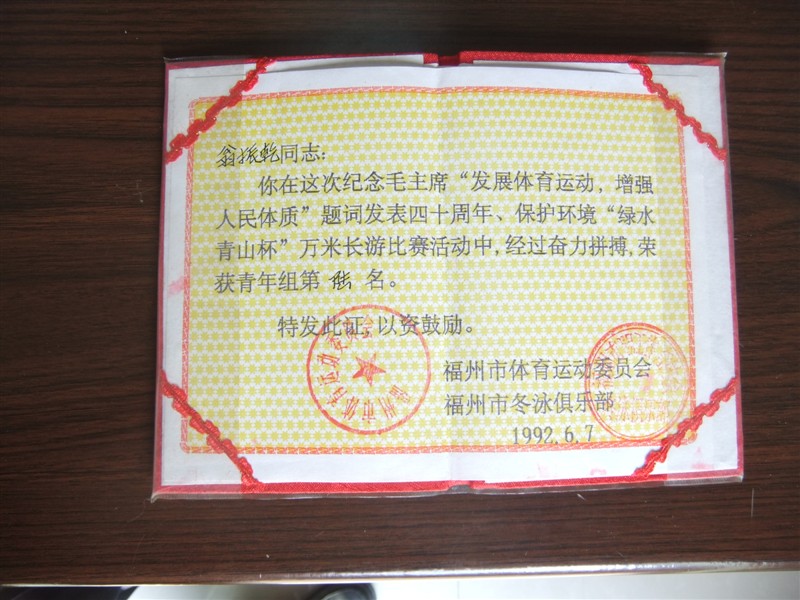 翁振乾同志：
你在这次纪念毛主席“发展体育运动，增强
人民体质”题词发表四十周年、保护环境“绿水
青山杯”万米长游比赛活动中，经过奋力拼搏，荣
获青年组第 陆 名。
特发此证，以资鼓励。
福州市体育运动委员会
福州市冬泳俱乐部
1992.6.7
福州市体育运动委员会